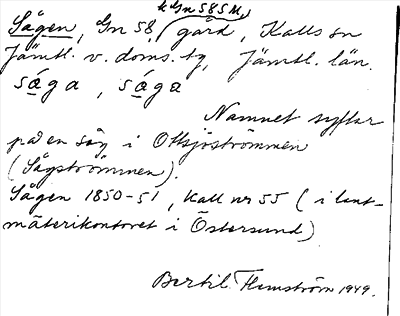 k Gn 585 M,
Sågen, Gn 58, (gård, Kalls sn
Jämtl. v. doms. tg, Jämtl. län.
såga, såga
Namnet syftar
på en såg i Ottsjöströmmen
(Sågströmmen).
Sågen 1850-51, Kall nr 55 (i lant-
mäterikontoret i Östersund)
Bertil Flemström 1949.